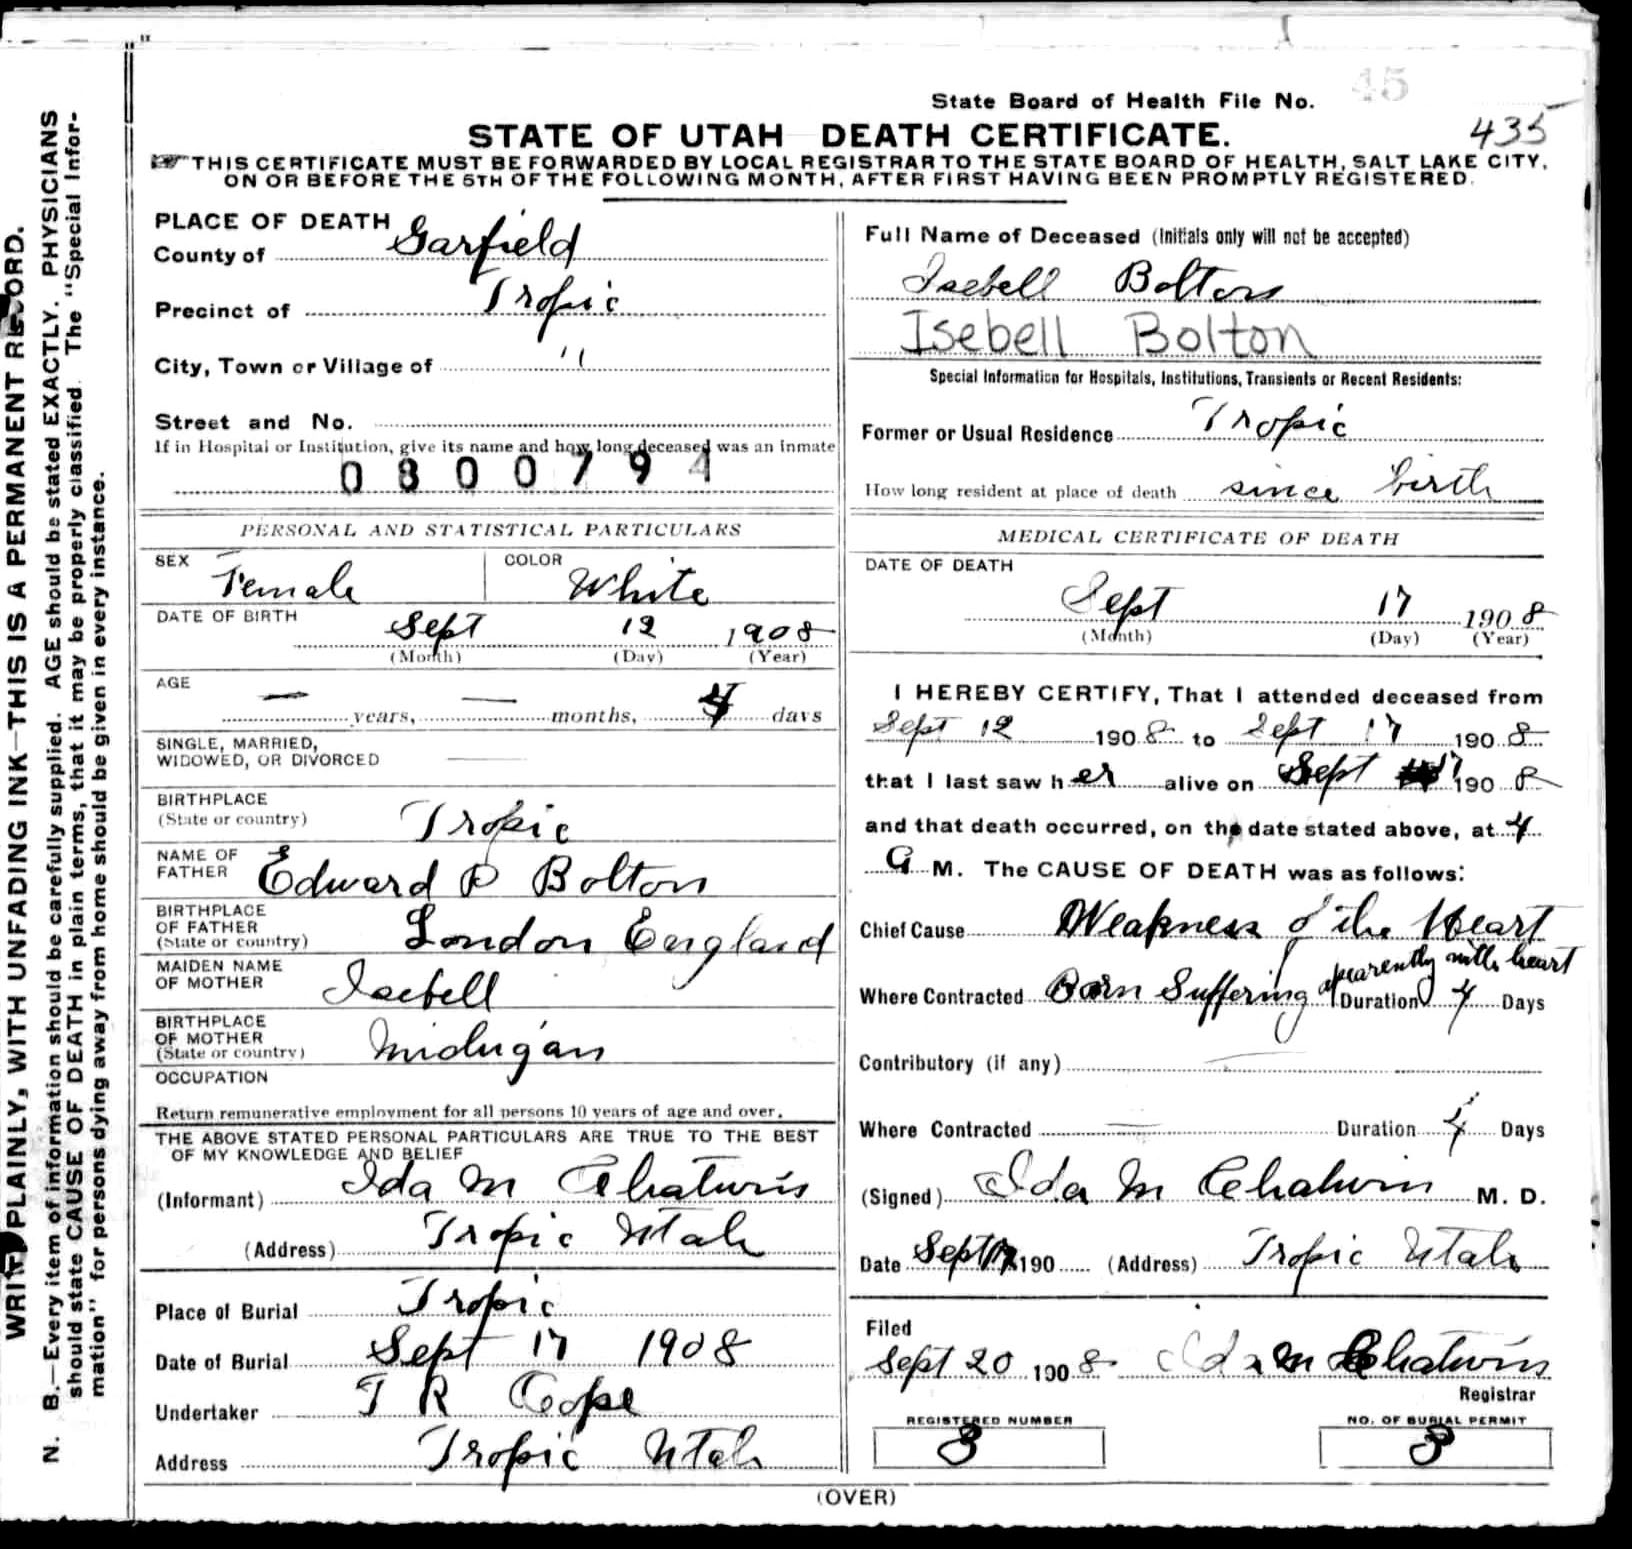 45
State Board of Health File No.
435
STATE OF UTAH DEATH CERTIFICATE.
THIS CERTIFICATE MUST BE FORWARDED BY LOCAL REGISTRAR TO THE STATE BOARD OF HEALTH, SALT LAKE CITY,
ON OR BEFORE THE 5TH OF THE FOLLOWING MONTH, AFTER FIRST HAVING BEEN PROMPTLY REGISTERED.
WRITE PLAINLY, WITH UNFADING INK—THIS IS A PERMANENT RECORD.
N. B.—Every item of information should be carefully supplied. AGE should be stated EXACTLY. PHYSICIANS
should state CAUSE OF DEATH in plain terms, that it may be properly classified. The "Special Infor-
mation" for persons dying away from home should be given in every instance.
PLACE OF DEATH
County of Garfield
Precinct of Tropic
City, Town or Village of "
Street and No.
If in Hospital or Institution, give its name and how long deceased was an inmate
0800794
PERSONAL AND STATISTICAL PARTICULARS
SEX Female COLOR White
DATE OF BIRTH Sept 12 1908
(Month) (Day) (Year)
AGE — years, — months, 4 days
SINGLE, MARRIED,
WIDOWED, OR DIVORCED —
BIRTHPLACE
(State or country) Tropic
NAME OF
FATHER Edward P Bolton
BIRTHPLACE
OF FATHER
(State or country) London England
MAIDEN NAME
OF MOTHER Isebell
BIRTHPLACE
OF MOTHER
(State or country) Michigan
OCCUPATION
Return remunerative employment for all persons 10 years of age and over.
THE ABOVE STATED PERSONAL PARTICULARS ARE TRUE TO THE BEST
OF MY KNOWLEDGE AND BELIEF
(Informant) Ida M Chatwin
(Address) Tropic Utah
Place of Burial Tropic
Date of Burial Sept 17 1908
Undertaker T R Cope
Address Tropic Utah
Full Name of Deceased (Initials only will not be accepted)
Isebell Bolton
Isebell Bolton
Special Information for Hospitals, Institutions, Transients or Recent Residents:
Former or Usual Residence Tropic
How long resident at place of death since birth
MEDICAL CERTIFICATE OF DEATH
DATE OF DEATH
Sept 17 1908
(Month) (Day) (Year)
I HEREBY CERTIFY, That I attended deceased from
Sept 12 1908 to Sept 17 1908
that I last saw her alive on Sept 17 1908
and that death occurred, on the date stated above, at 4
a M. The CAUSE OF DEATH was as follows:
Chief Cause Weakness of the Heart
apparently with heart
Where Contracted Born Suffering Duration 4 Days
Contributory (if any) —
Where Contracted — Duration 4 Days
(Signed) Ida M Chatwin M. D.
Date Sept 17 190 (Address) Tropic Utah
Filed
Sept 20 1908 Ida M Chatwin
Registrar
REGISTERED NUMBER NO. OF BURIAL PERMIT
8 8
(OVER)